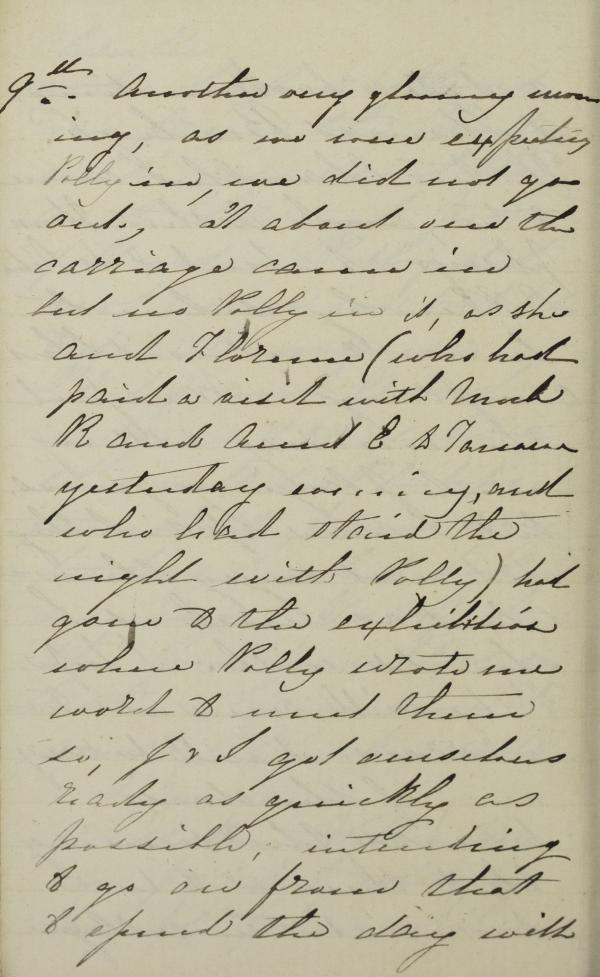 9th. Another very gloomy morn
ing, as we were expecting
Polly in, we did not go
out, at about one the
carriage came in
but no Polly in it, as she
and Florence (who had
paid a visit with Uncle
R and Aunt E to
yesterday evening, and
who had staid the
night with Polly) had
gone to the exhibition
where Polly wrote me
word to meet them
so, J & I got ourselves
ready as quickly as
possible, intending
to go on from that
to spend the day with